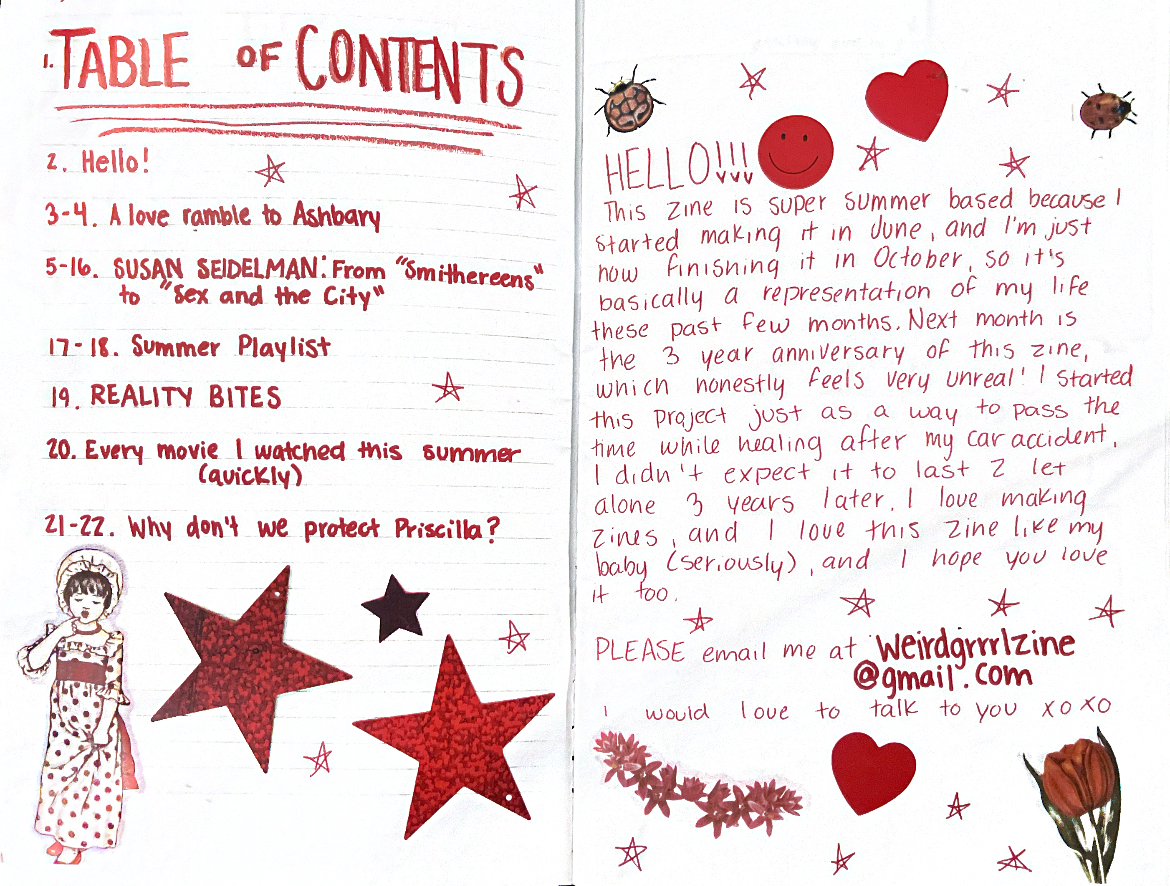 1. TABLE OF CONTENTS
2. Hello!
3-4. A love ramble to Ashbary
5-16. SUSAN SEIDELMAN: From "Smithereens"
to "Sex and the City"
17-18. Summer Playlist
19. REALITY BITES
20. Every movie I watched this summer
(quickly)
21-22. Why don't we protect Priscilla?
HELLO!!!
This zine is super summer based because I
started making it in June, and I'm just
now finishing it in October, so it's
basically a representation of my life
these past few months. Next month is
the 3 year anniversary of this zine,
which honestly feels very unreal! I started
this project just as a way to pass the
time while healing after my car accident.
I didn't expect it to last 2 let
alone 3 years later. I love making
zines, and I love this zine like my
baby (seriously), and I hope you love
it too.
PLEASE email me at weirdgrrrlzine
@gmail.com
I would love to talk to you xoxo